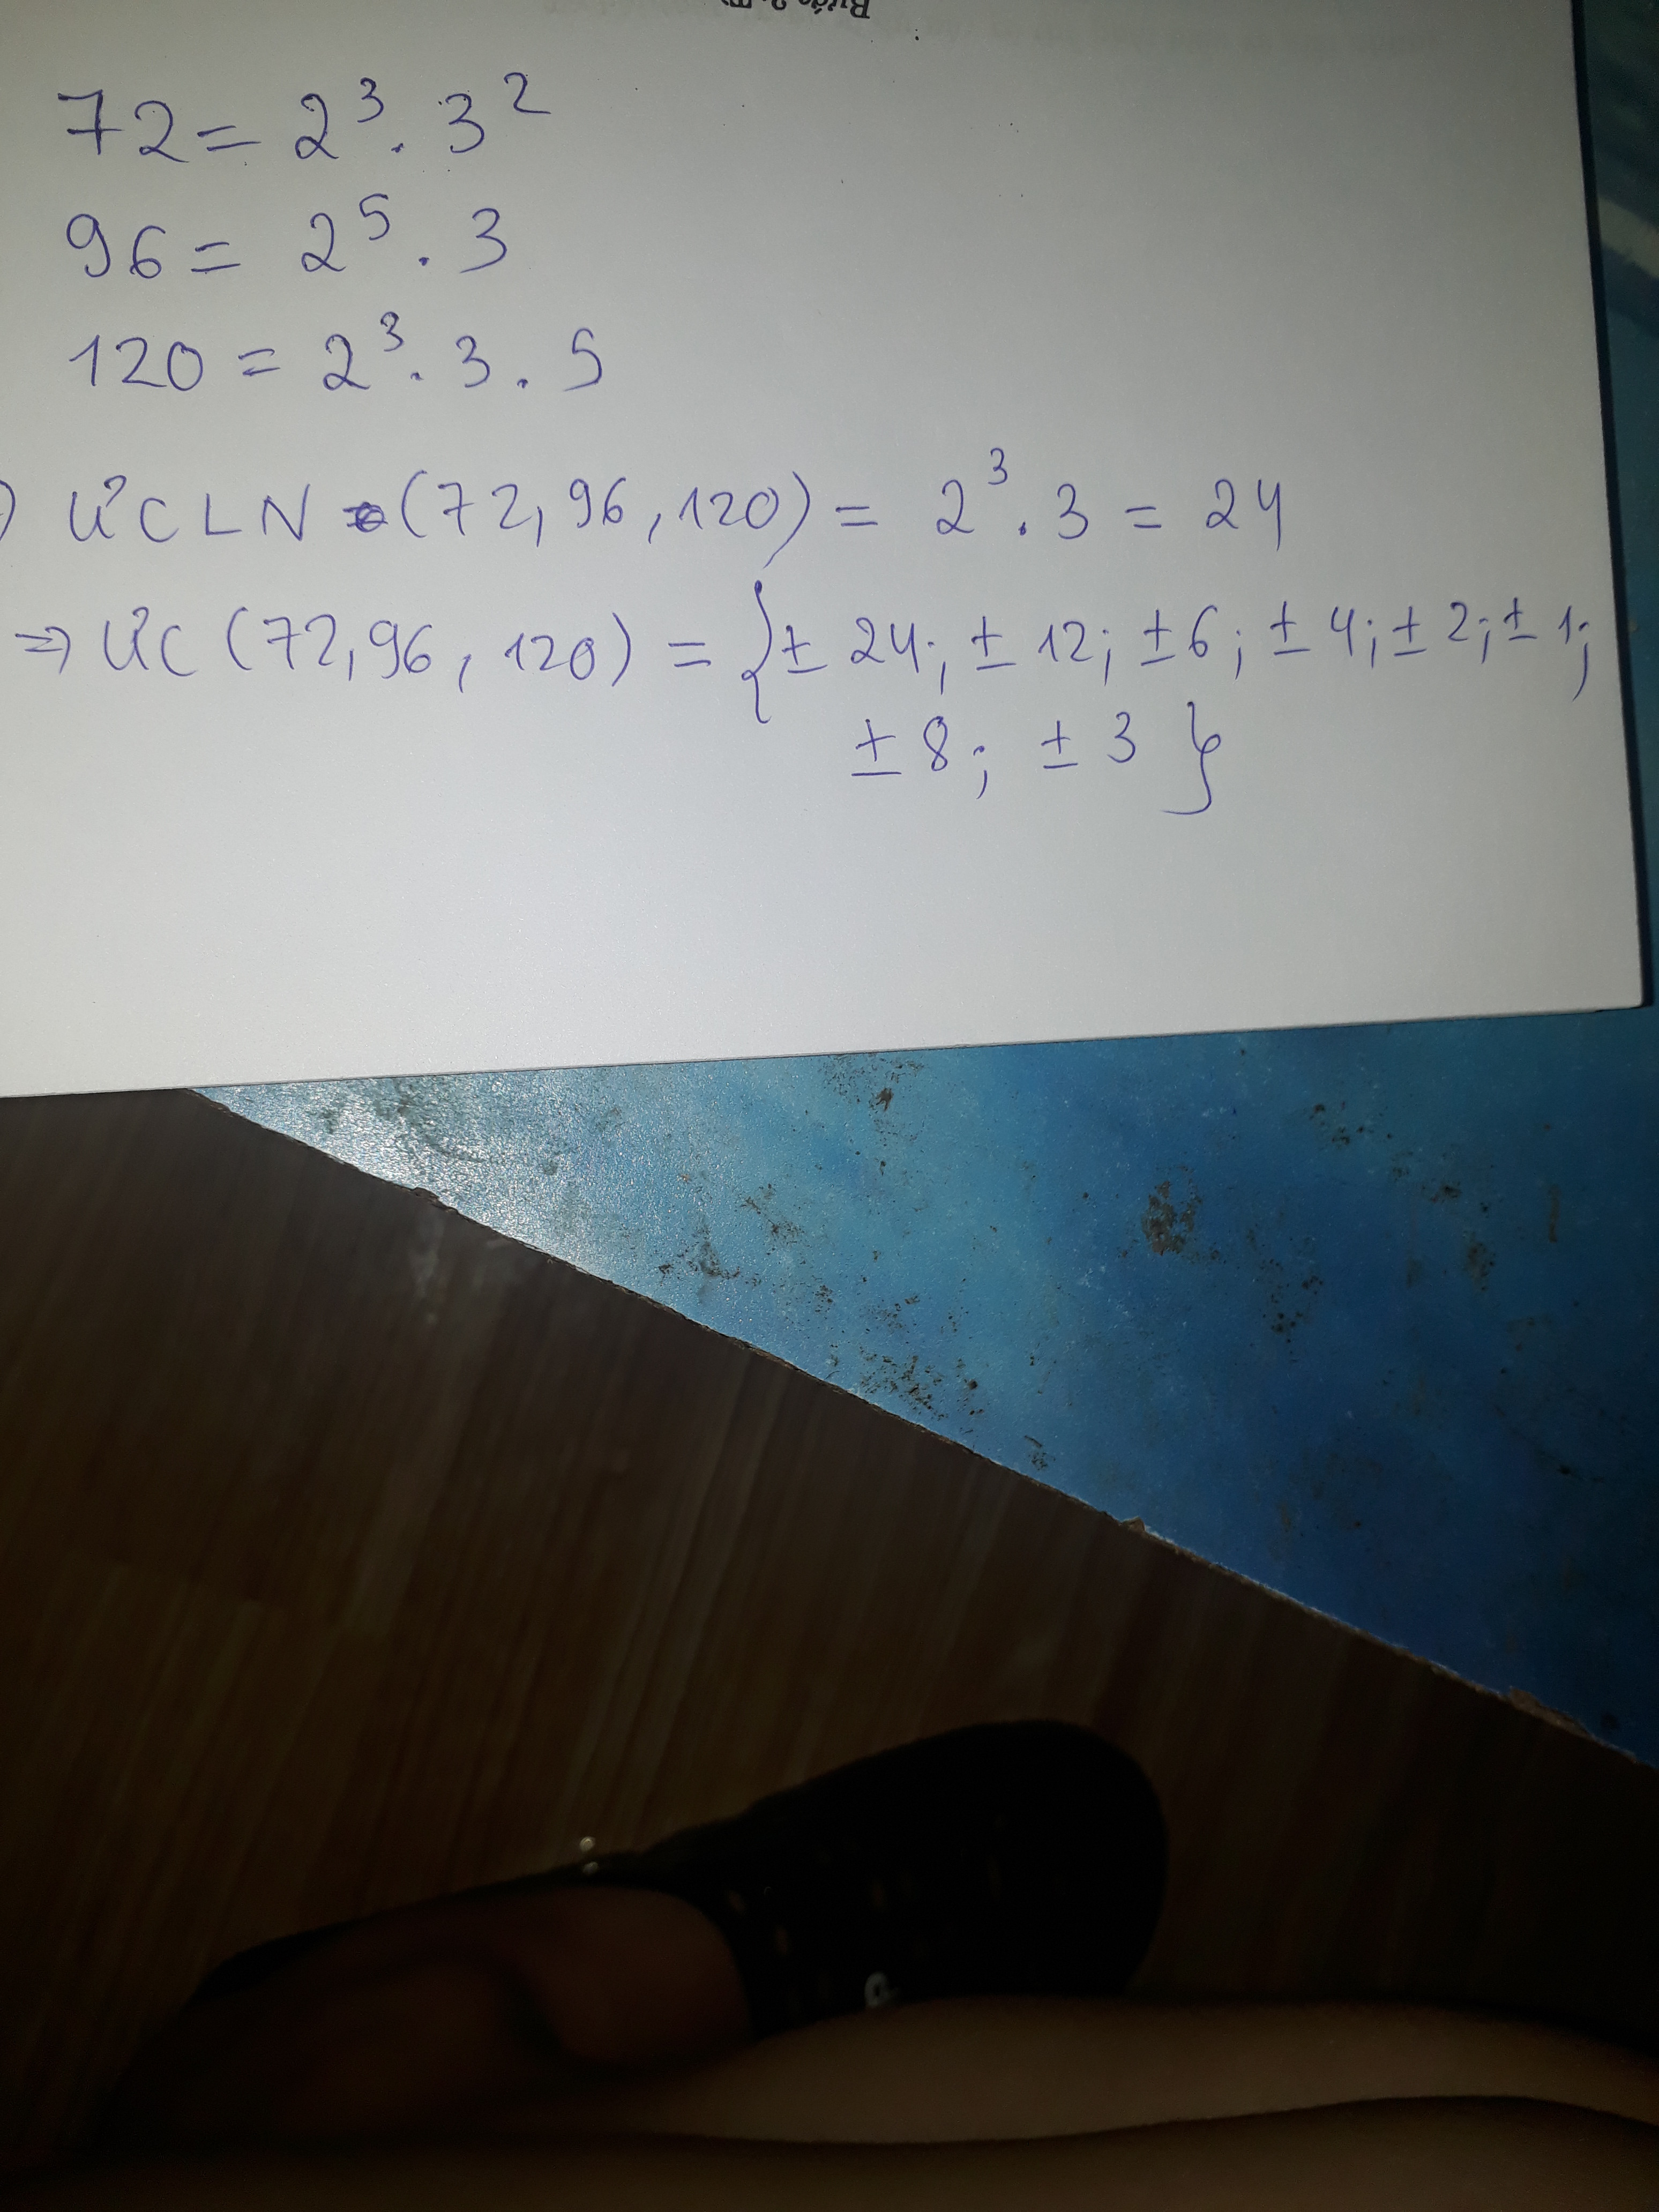 72 = 2³ . 3²
96 = 2⁵ . 3
120 = 2³ . 3 . 5
) ƯCLN (72, 96, 120) = 2³ . 3 = 24
⇒ ƯC (72, 96, 120) = { ± 24; ± 12; ± 6; ± 4; ± 2; ± 1;
± 8; ± 3 }